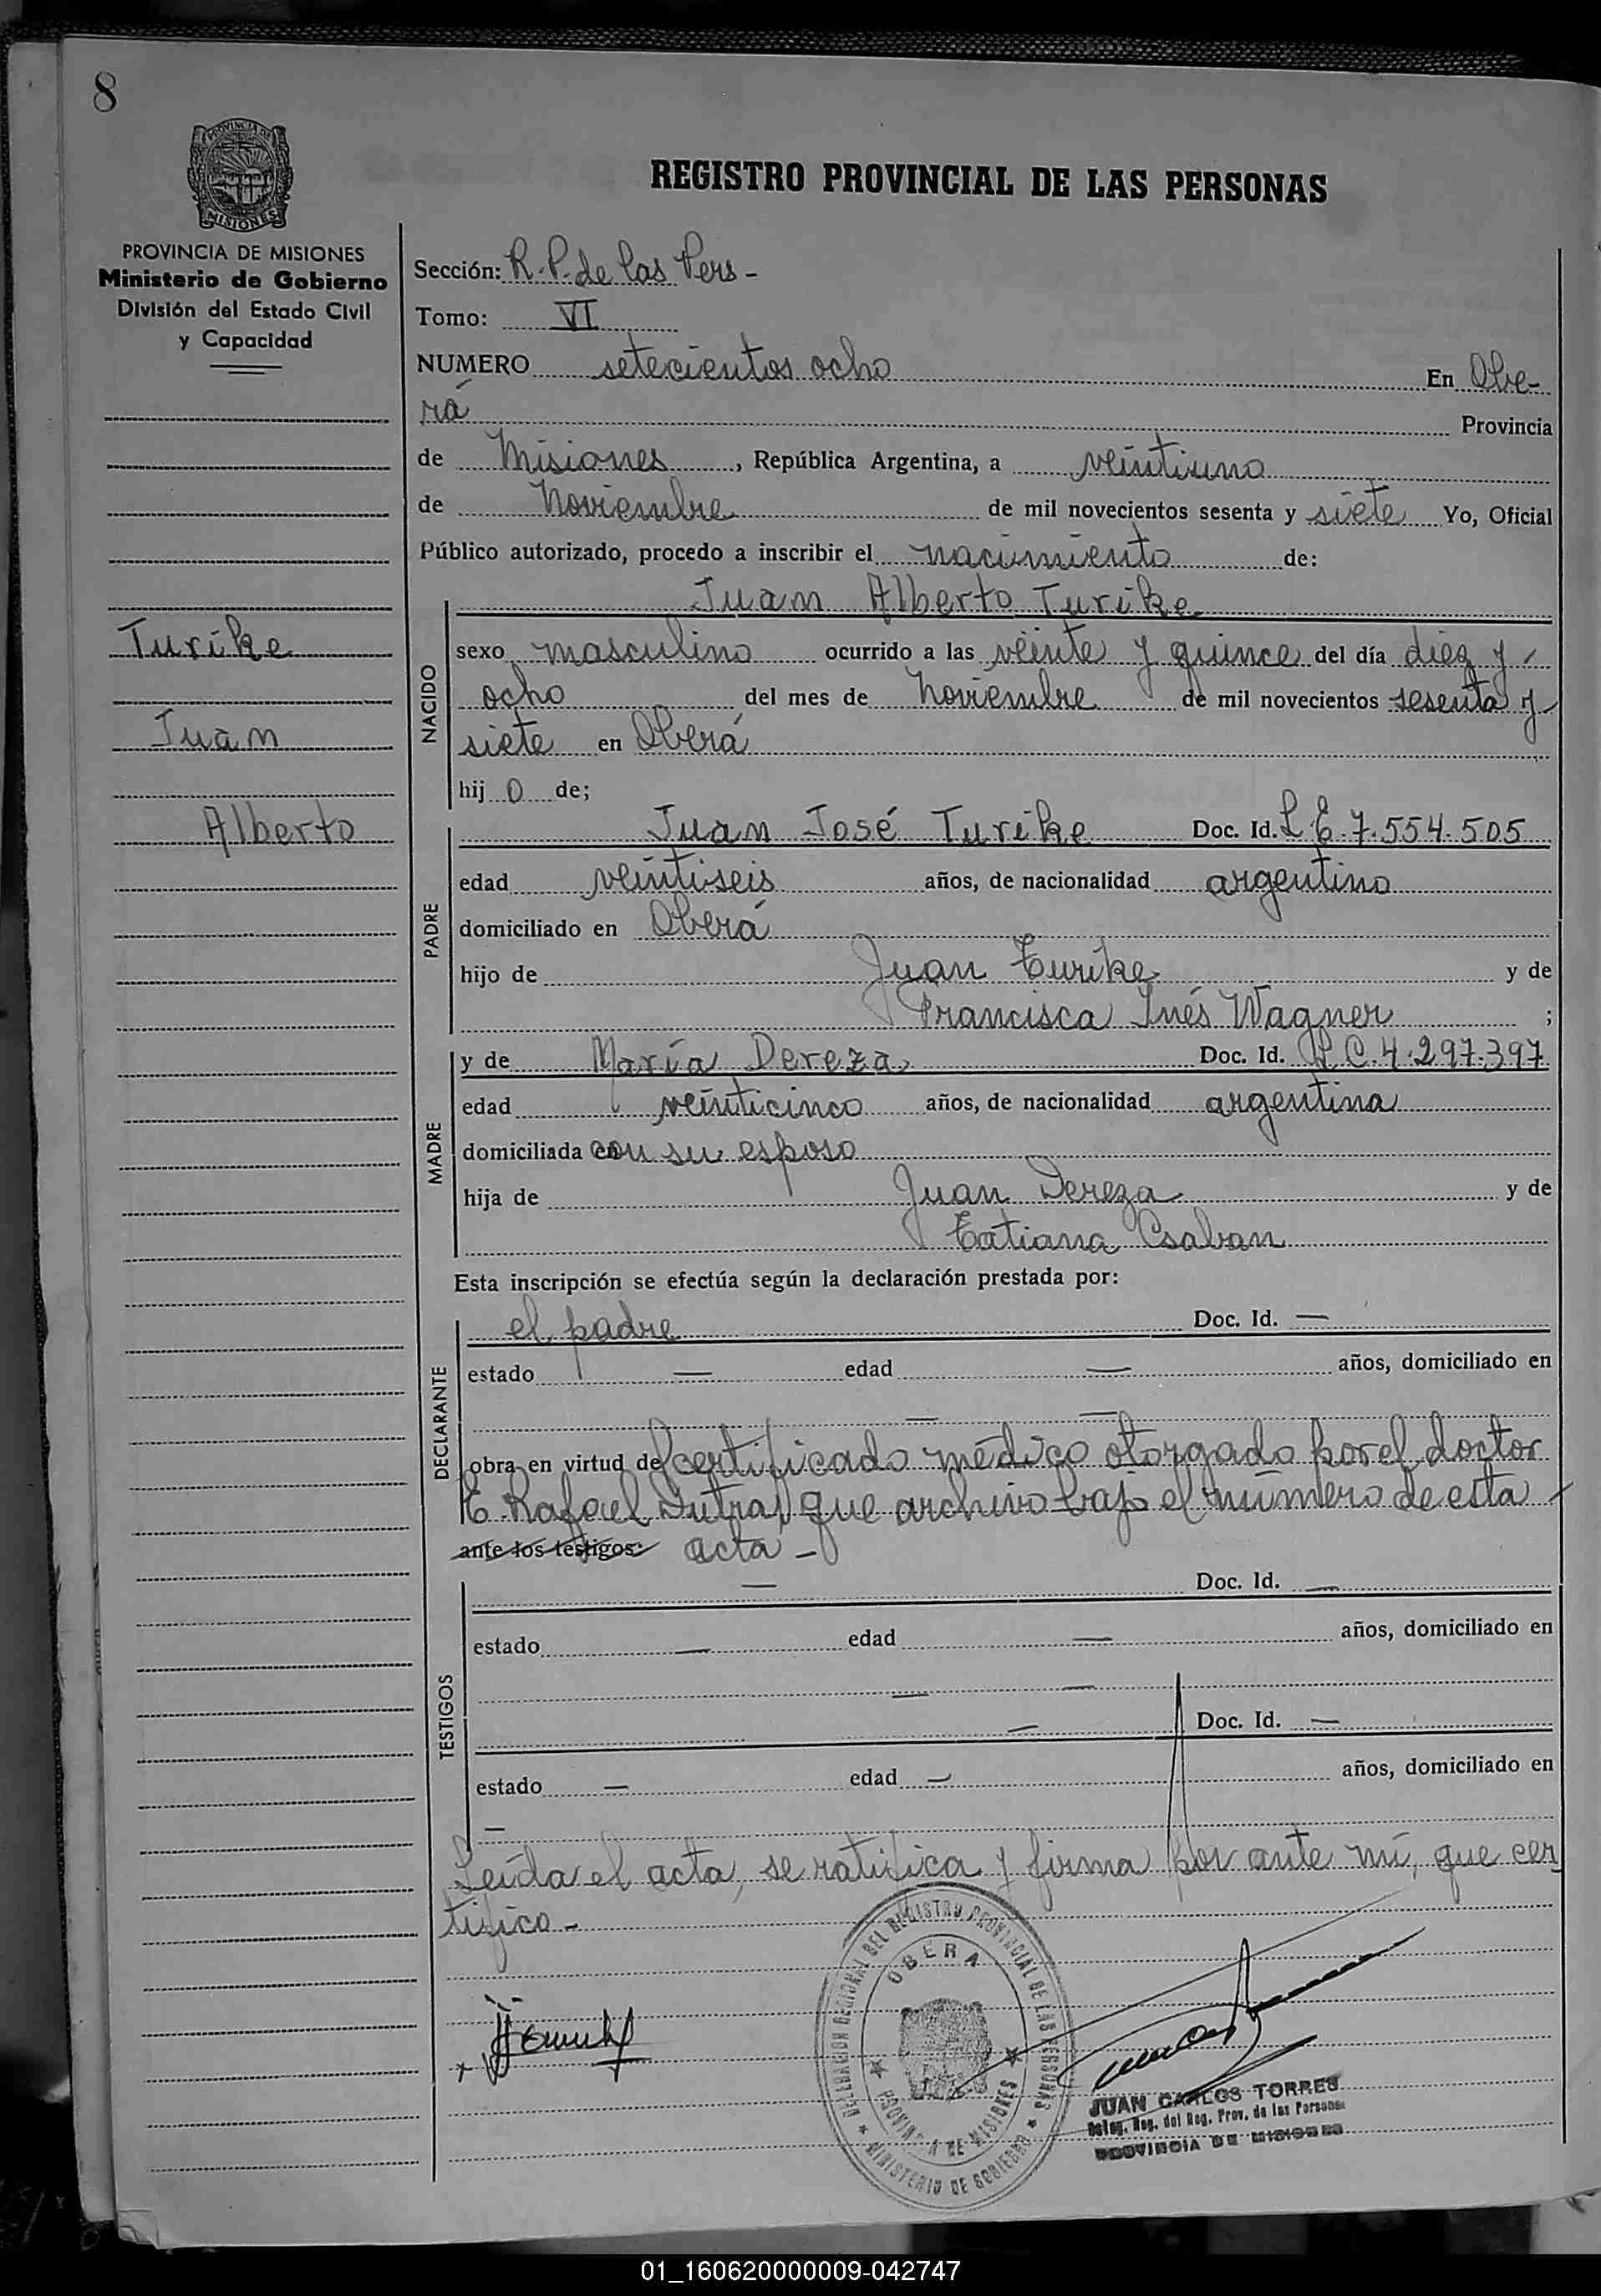 8
PROVINCIA DE
MISIONES
REGISTRO PROVINCIAL DE LAS PERSONAS
PROVINCIA DE MISIONES
Ministerio de Gobierno
División del Estado Civil
y Capacidad
Turike
Juan
Alberto
Sección: R. P. de las Pers -
Tomo: VI
NUMERO setecientos ocho En Obe-
rá Provincia
de Misiones, República Argentina, a veintiuno
de Noviembre de mil novecientos sesenta y siete Yo, Oficial
Público autorizado, procedo a inscribir el nacimiento de:
Juan Alberto Turike
NACIDO
sexo masculino ocurrido a las veinte y quince del día diez y
ocho del mes de Noviembre de mil novecientos sesenta y
siete en Oberá
hij o de;
PADRE
Juan José Turike Doc. Id. L E. 7.554.505
edad veintiseis años, de nacionalidad argentino
domiciliado en Oberá
hijo de Juan Turike y de
Francisca Inés Wagner ;
MADRE
y de María Dereza Doc. Id. L C. 4.297.397
edad veinticinco años, de nacionalidad argentina
domiciliada con su esposo
hija de Juan Dereza y de
Tatiana Csaban
Esta inscripción se efectúa según la declaración prestada por:
DECLARANTE
el padre Doc. Id. —
estado — edad — años, domiciliado en
— —
obra en virtud del certificado médico otorgado por el doctor
E. Rafael Dutra, que archivo bajo el número de esta
ante los testigos: acta -
TESTIGOS
— Doc. Id. —
estado — edad — años, domiciliado en
— —
— Doc. Id. —
estado — edad — años, domiciliado en
—
Leída el acta, se ratifica y firma por ante mí, que cer
tifico -
DELEGACION REGIONAL DEL REGISTRO PROVINCIAL DE LAS PERSONAS
OBERA
PROVINCIA DE MISIONES
MINISTERIO DE GOBIERNO
JUAN CARLOS TORRES
Deleg. Reg. del Reg. Prov. de las Personas
PROVINCIA DE MISIONES
01_160620000009-042747